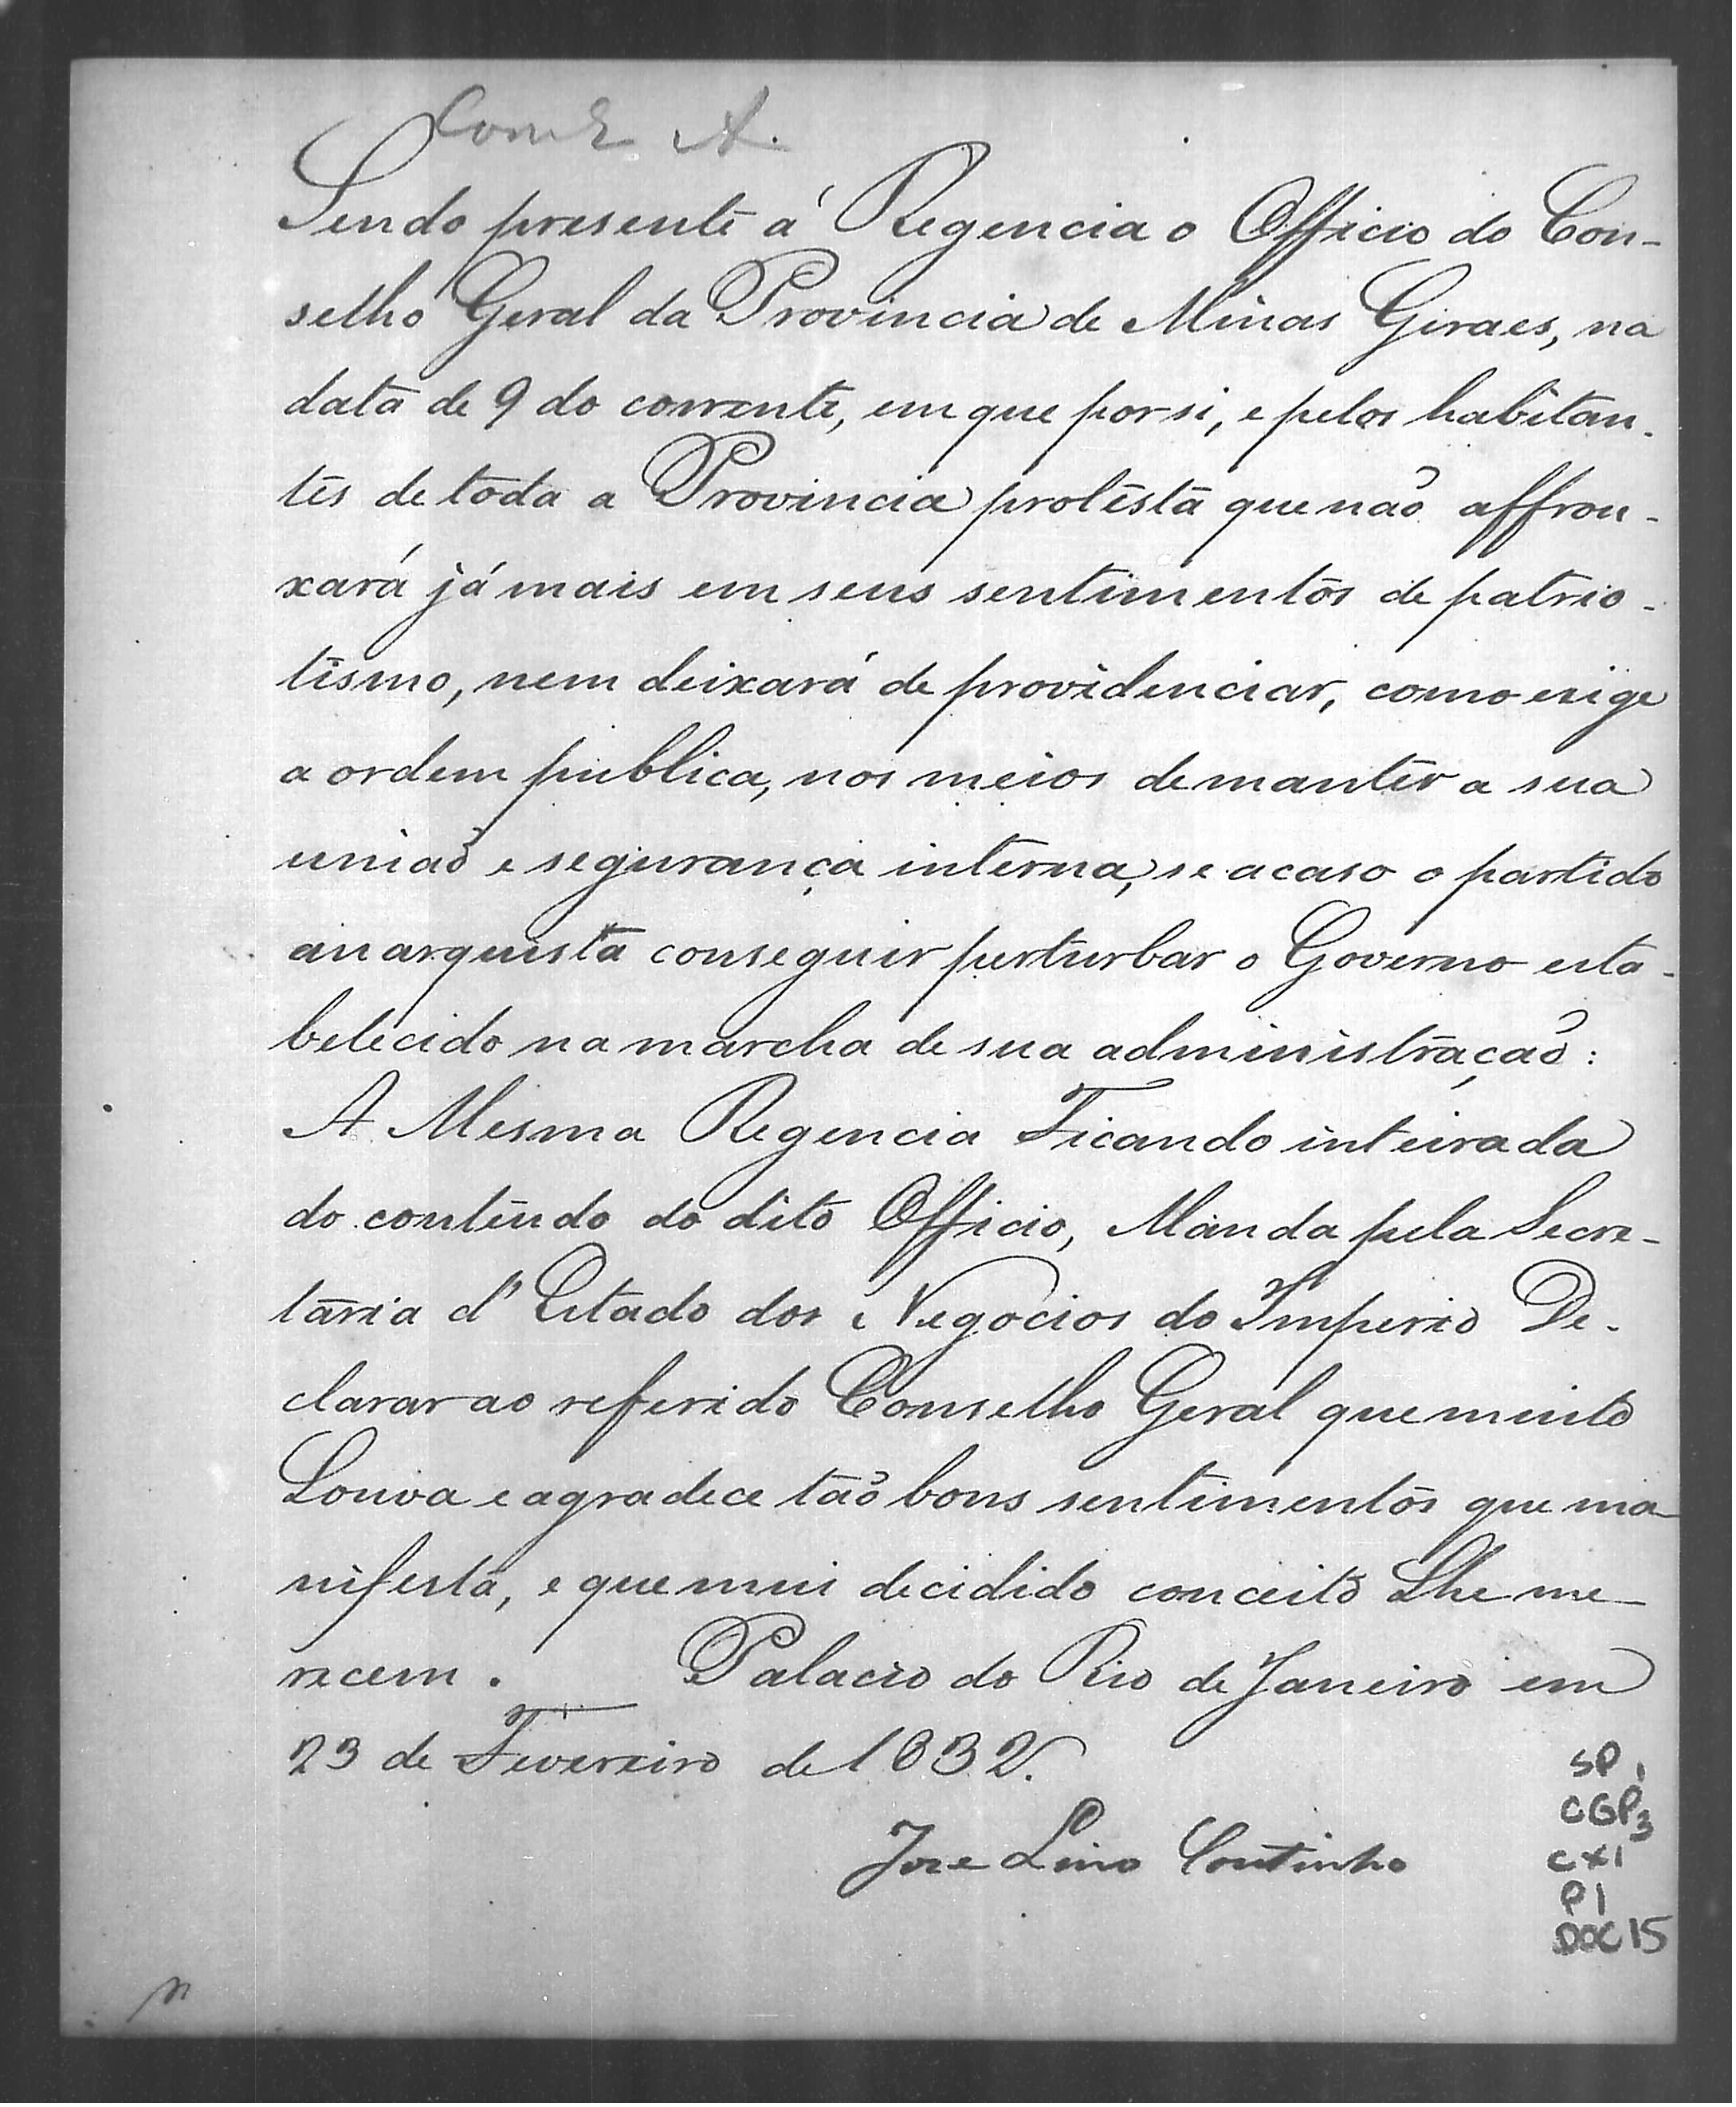 Sendo presente á Regencia o Officio do Con-
selho Geral da Provincia de Minas Geraes, na
data de 9 do corrente, em que por si, e pelos habitan-
tes de toda a Provincia protesta que não affrou-
xará já mais em seus sentimentos de patrio-
tismo, nem deixará de providenciar, como exige
a ordem publica, nos meios de manter a sua
união e segurança interna, se acaso o partido
anarquista conseguir perturbar o Governo esta-
belecido na marcha de sua administração:
A Mesma Regencia Ficando inteirada
do conteudo do dito Officio, Manda pela Secre-
taria d'Estado dos Negocios do Imperio De-
clarar ao referido Conselho Geral que muito
Louva e agradece tão bons sentimentos que ma-
nifesta, e que mui decidido conceito Lhe me-
recem. Palacio do Rio de Janeiro em
23 de Fevereiro de 1832.
Jose Lino Coutinho
SP1
CGP3
CX1
P1
DOC15